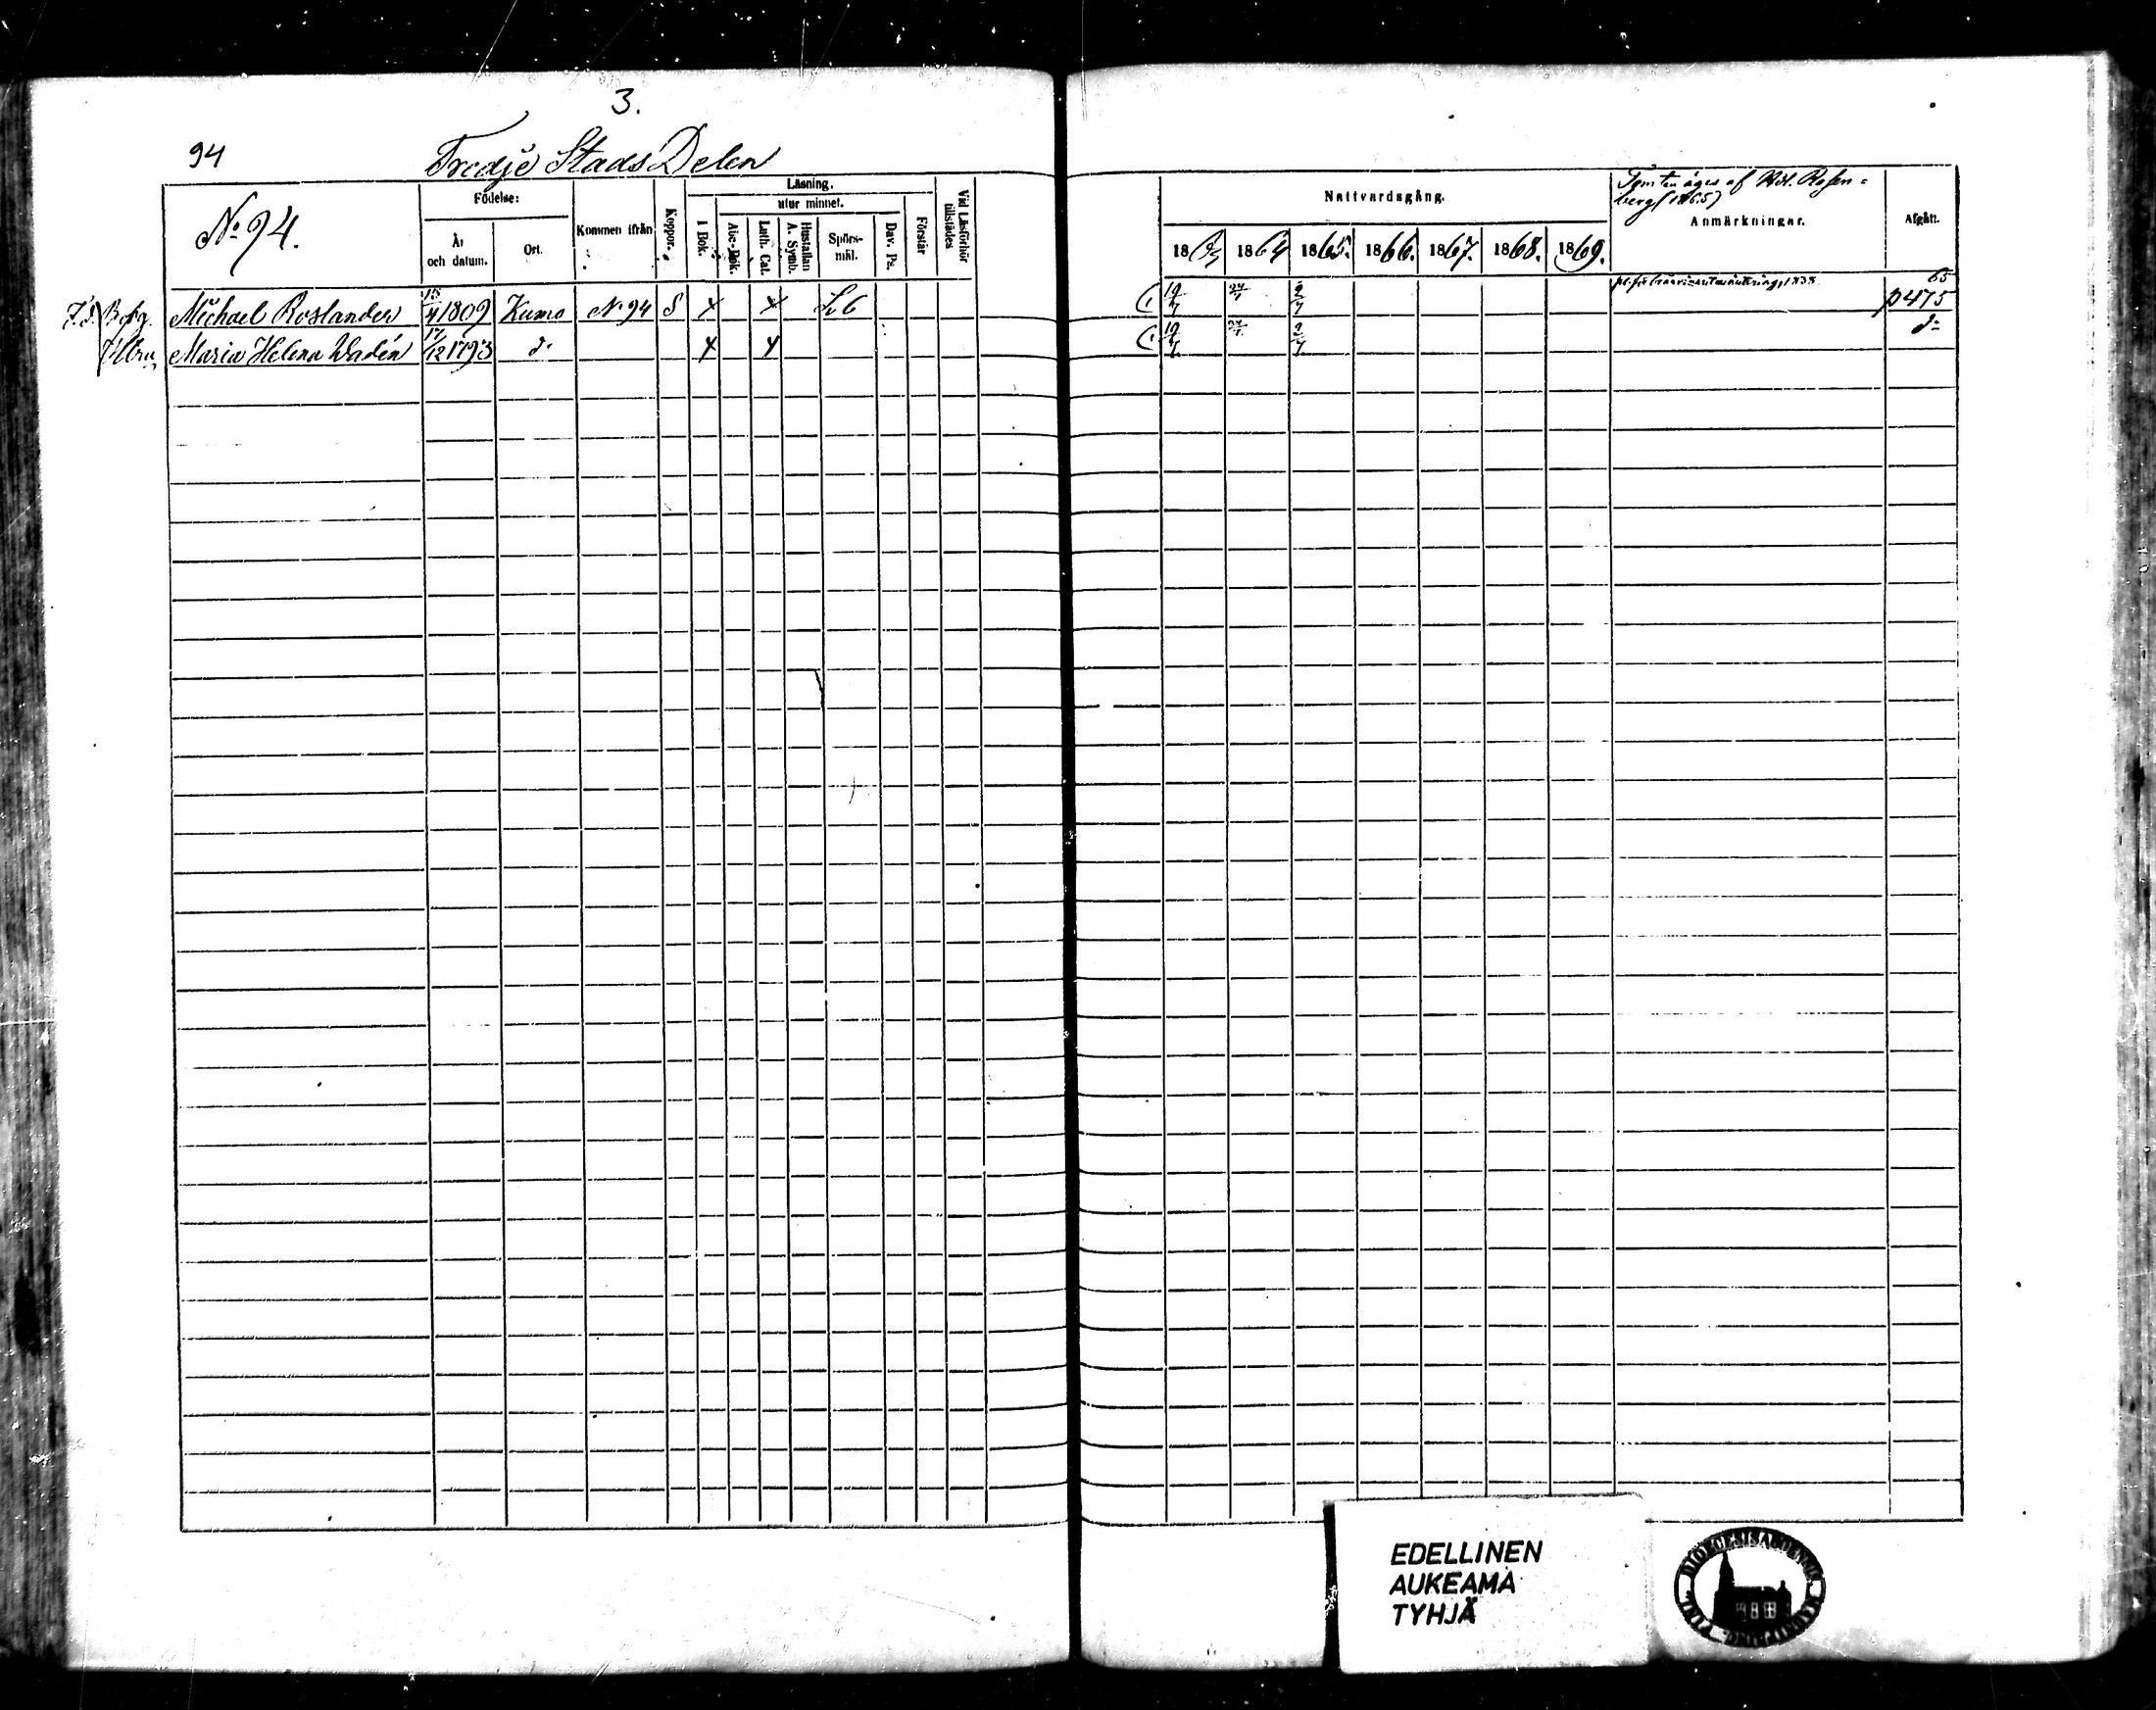 3.
94
Tredje Stads Delen
No 94.
Födelse:
År och datum.
Ort.
Kommen ifrån
Koppor.
Läsning.
utur minnet.
I Bok.
Abc-Bok.
Luth. Cat.
Hustaflan A. Symb.
Spörs-mål.
Dav. Ps.
Förstår
Vid Läsförhör tillstädes
Nattvardsgång.
1863 1864 1865. 1866. 1867. 1868. 1869.
Tomten äges af Rosen=
berg (1865)
Anmärkningar.
Afgått.
Michael Roslander 15/4 1809 Kumo N:94 S x x 19/7 24/1 2/7 65 p475
Maria Helena Wadén 17/12 1793 d:o x x 19/7 24/1 2/7 d:o
EDELLINEN
AUKEAMA
TYHJÄ